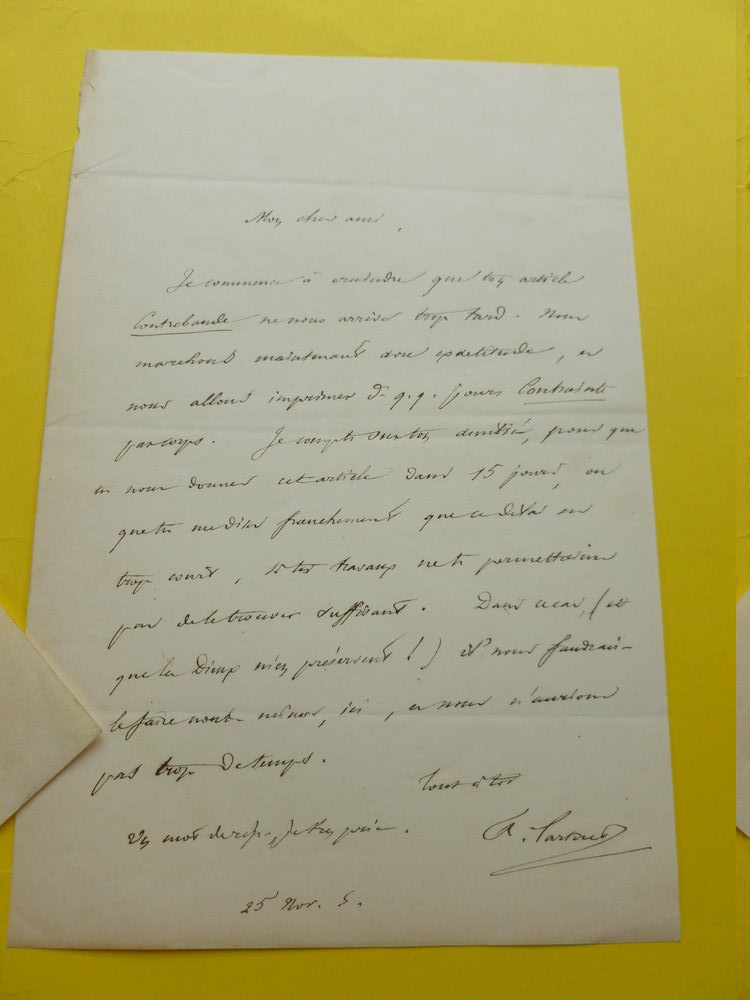 Mon cher ami,
Je commence à craindre que ton article
Contrebande ne nous arrive trop tard. Nous
marchons maintenant avec exactitude, et
nous allons imprimer ds q.q. jours Contrainte
par corps. Je compte sur ton amitié, pour que
tu nous donnes cet article dans 15 jours, ou
que tu me dises franchement que ce délai est
trop court, si tes travaux ne te permettaient
pas de le trouver suffisant. Dans ce cas, (et
que les Dieux m'en préservent!) il nous faudrait
le faire nous-mêmes, ici, et nous n'aurions
pas trop de temps.
Tout à toi
Un mot de rép., je t'en prie.
25 Nov. 5.